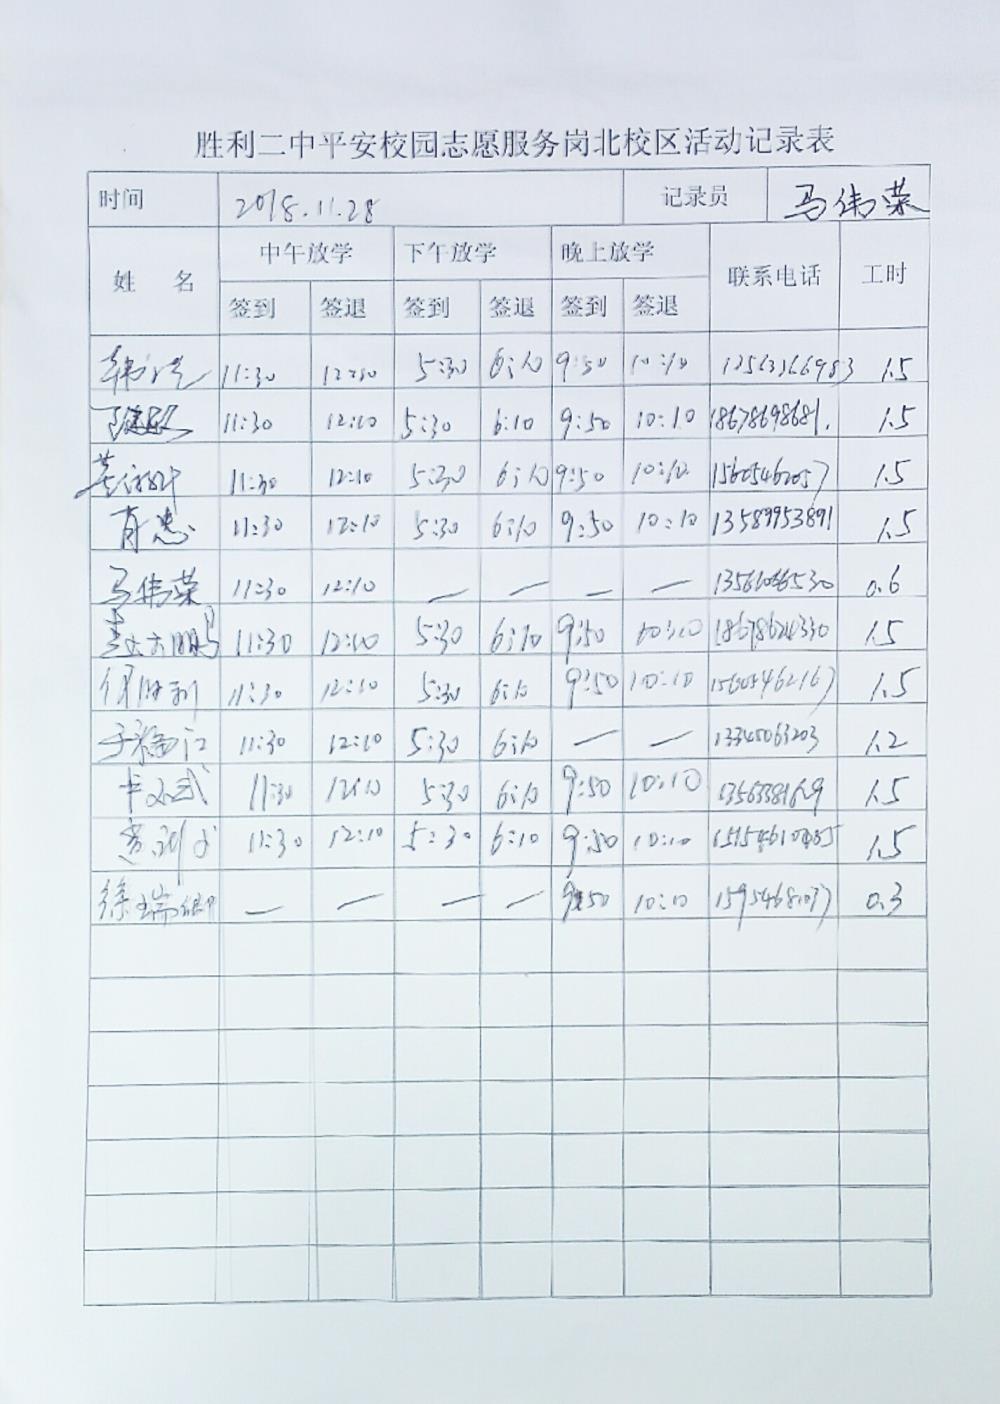 胜利二中平安校园志愿服务岗北校区活动记录表
时间 2018.11.28 记录员 马伟荣
姓 名 中午放学 下午放学 晚上放学 联系电话 工时
签到 签退 签到 签退 签到 签退
11:30 12:10 5:30 6:10 9:50 10:10 1.5
11:30 12:10 5:30 6:10 9:50 10:10 18678698681. 1.5
11:30 12:10 5:30 6:10 9:50 10:10 1.5
肖忠 11:30 12:10 5:30 6:10 9:50 10:10 13589953891 1.5
马伟荣 11:30 12:10 — — — — 0.6
11:30 12:10 5:30 6:10 9:50 10:10 18678624330 1.5
11:30 12:10 5:30 6:10 9:50 10:10 15605462167 1.5
11:30 12:10 5:30 6:10 — — 13345063203 1.2
11:30 12:10 5:30 6:10 9:50 10:10 1.5
11:30 12:10 5:30 6:10 9:50 10:10 1.5
— — — — 9:50 10:10 0.3